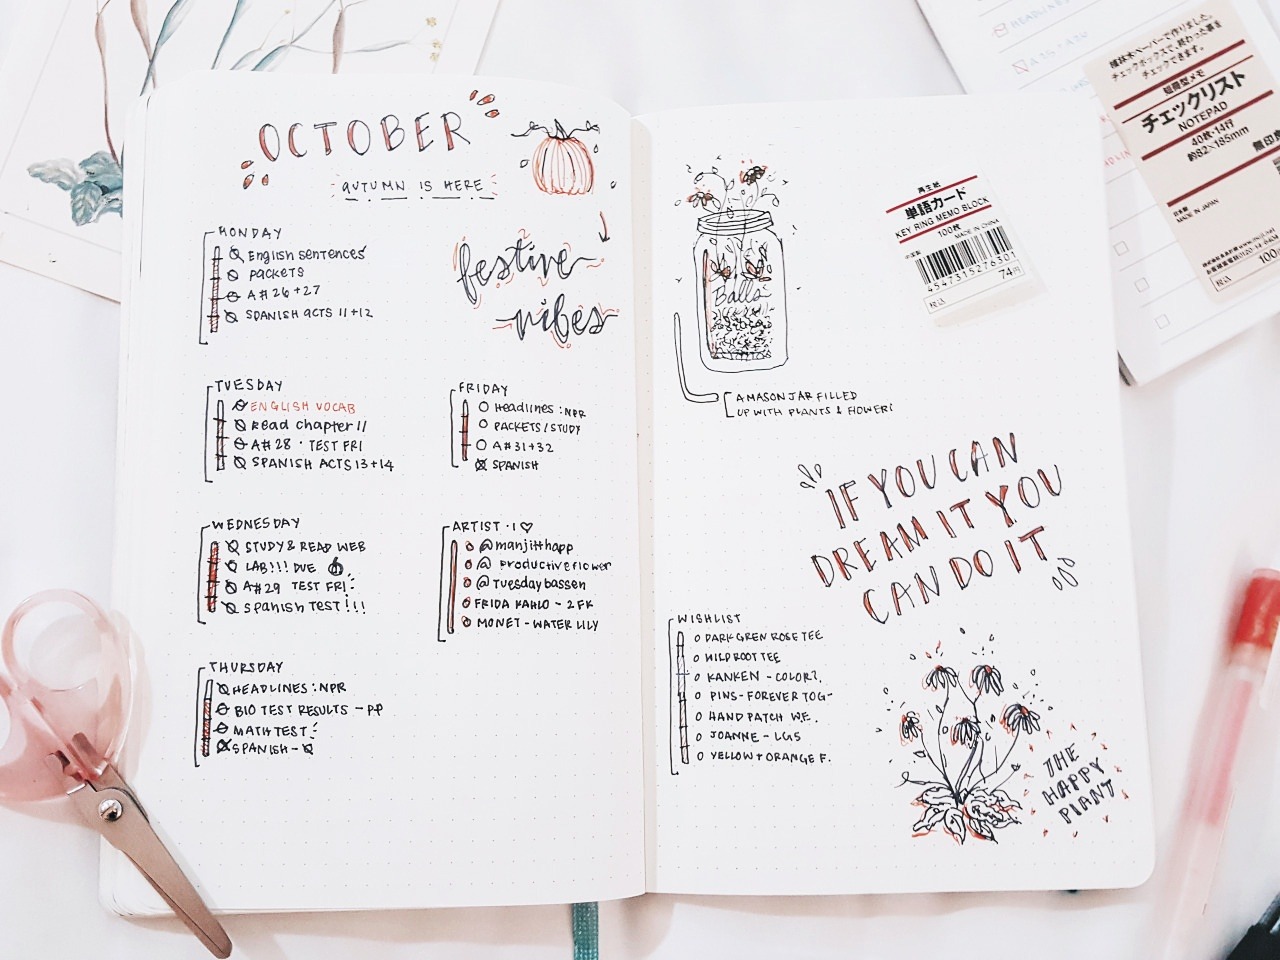 OCTOBER
AUTUMN IS HERE
MONDAY
English sentences
PACKETS
A#26+27
SPANISH ACTS 11+12
festive
vibes
TUESDAY
ENGLISH VOCAB
Read chapter 11
A#28 · TEST FRI
SPANISH ACTS 13+14
FRIDAY
Headlines: NPR
PACKETS/STUDY
A#31+32
SPANISH
WEDNESDAY
STUDY & READ WEB
LAB!!! DUE
A#29 TEST FRI!
SPANISH TEST!!!
ARTIST · I ♡
@manjitthapp
@productiveflower
@Tuesdaybassen
FRIDA KAHLO - 2FK
MONET - WATER LILY
THURSDAY
HEADLINES: NPR
BIO TEST RESULTS - PP
MATH TEST!
SPANISH -
Ball
A MASON JAR FILLED
UP WITH PLANTS & FLOWER!
IF YOU CAN
DREAM IT YOU
CAN DO IT
WISHLIST
DARK GREN ROSE TEE
WILD ROOT TEE
KANKEN - COLOR?.
PINS - FOREVER TOG-
HAND PATCH WE.
JOANNE - LG5
YELLOW + ORANGE F.
THE
HAPPY
PLANT
再生紙
単語カード
KEY RING MEMO BLOCK
100枚
MADE IN CHINA
4547315276301
税込
74円
植林木ペーパーで作りました。
チェックボックスで、終わった事を
チェックできます。
短冊型メモ
チェックリスト
NOTEPAD
40枚・14行
約82×185mm
無印良
日本製
MADE IN JAPAN
税込